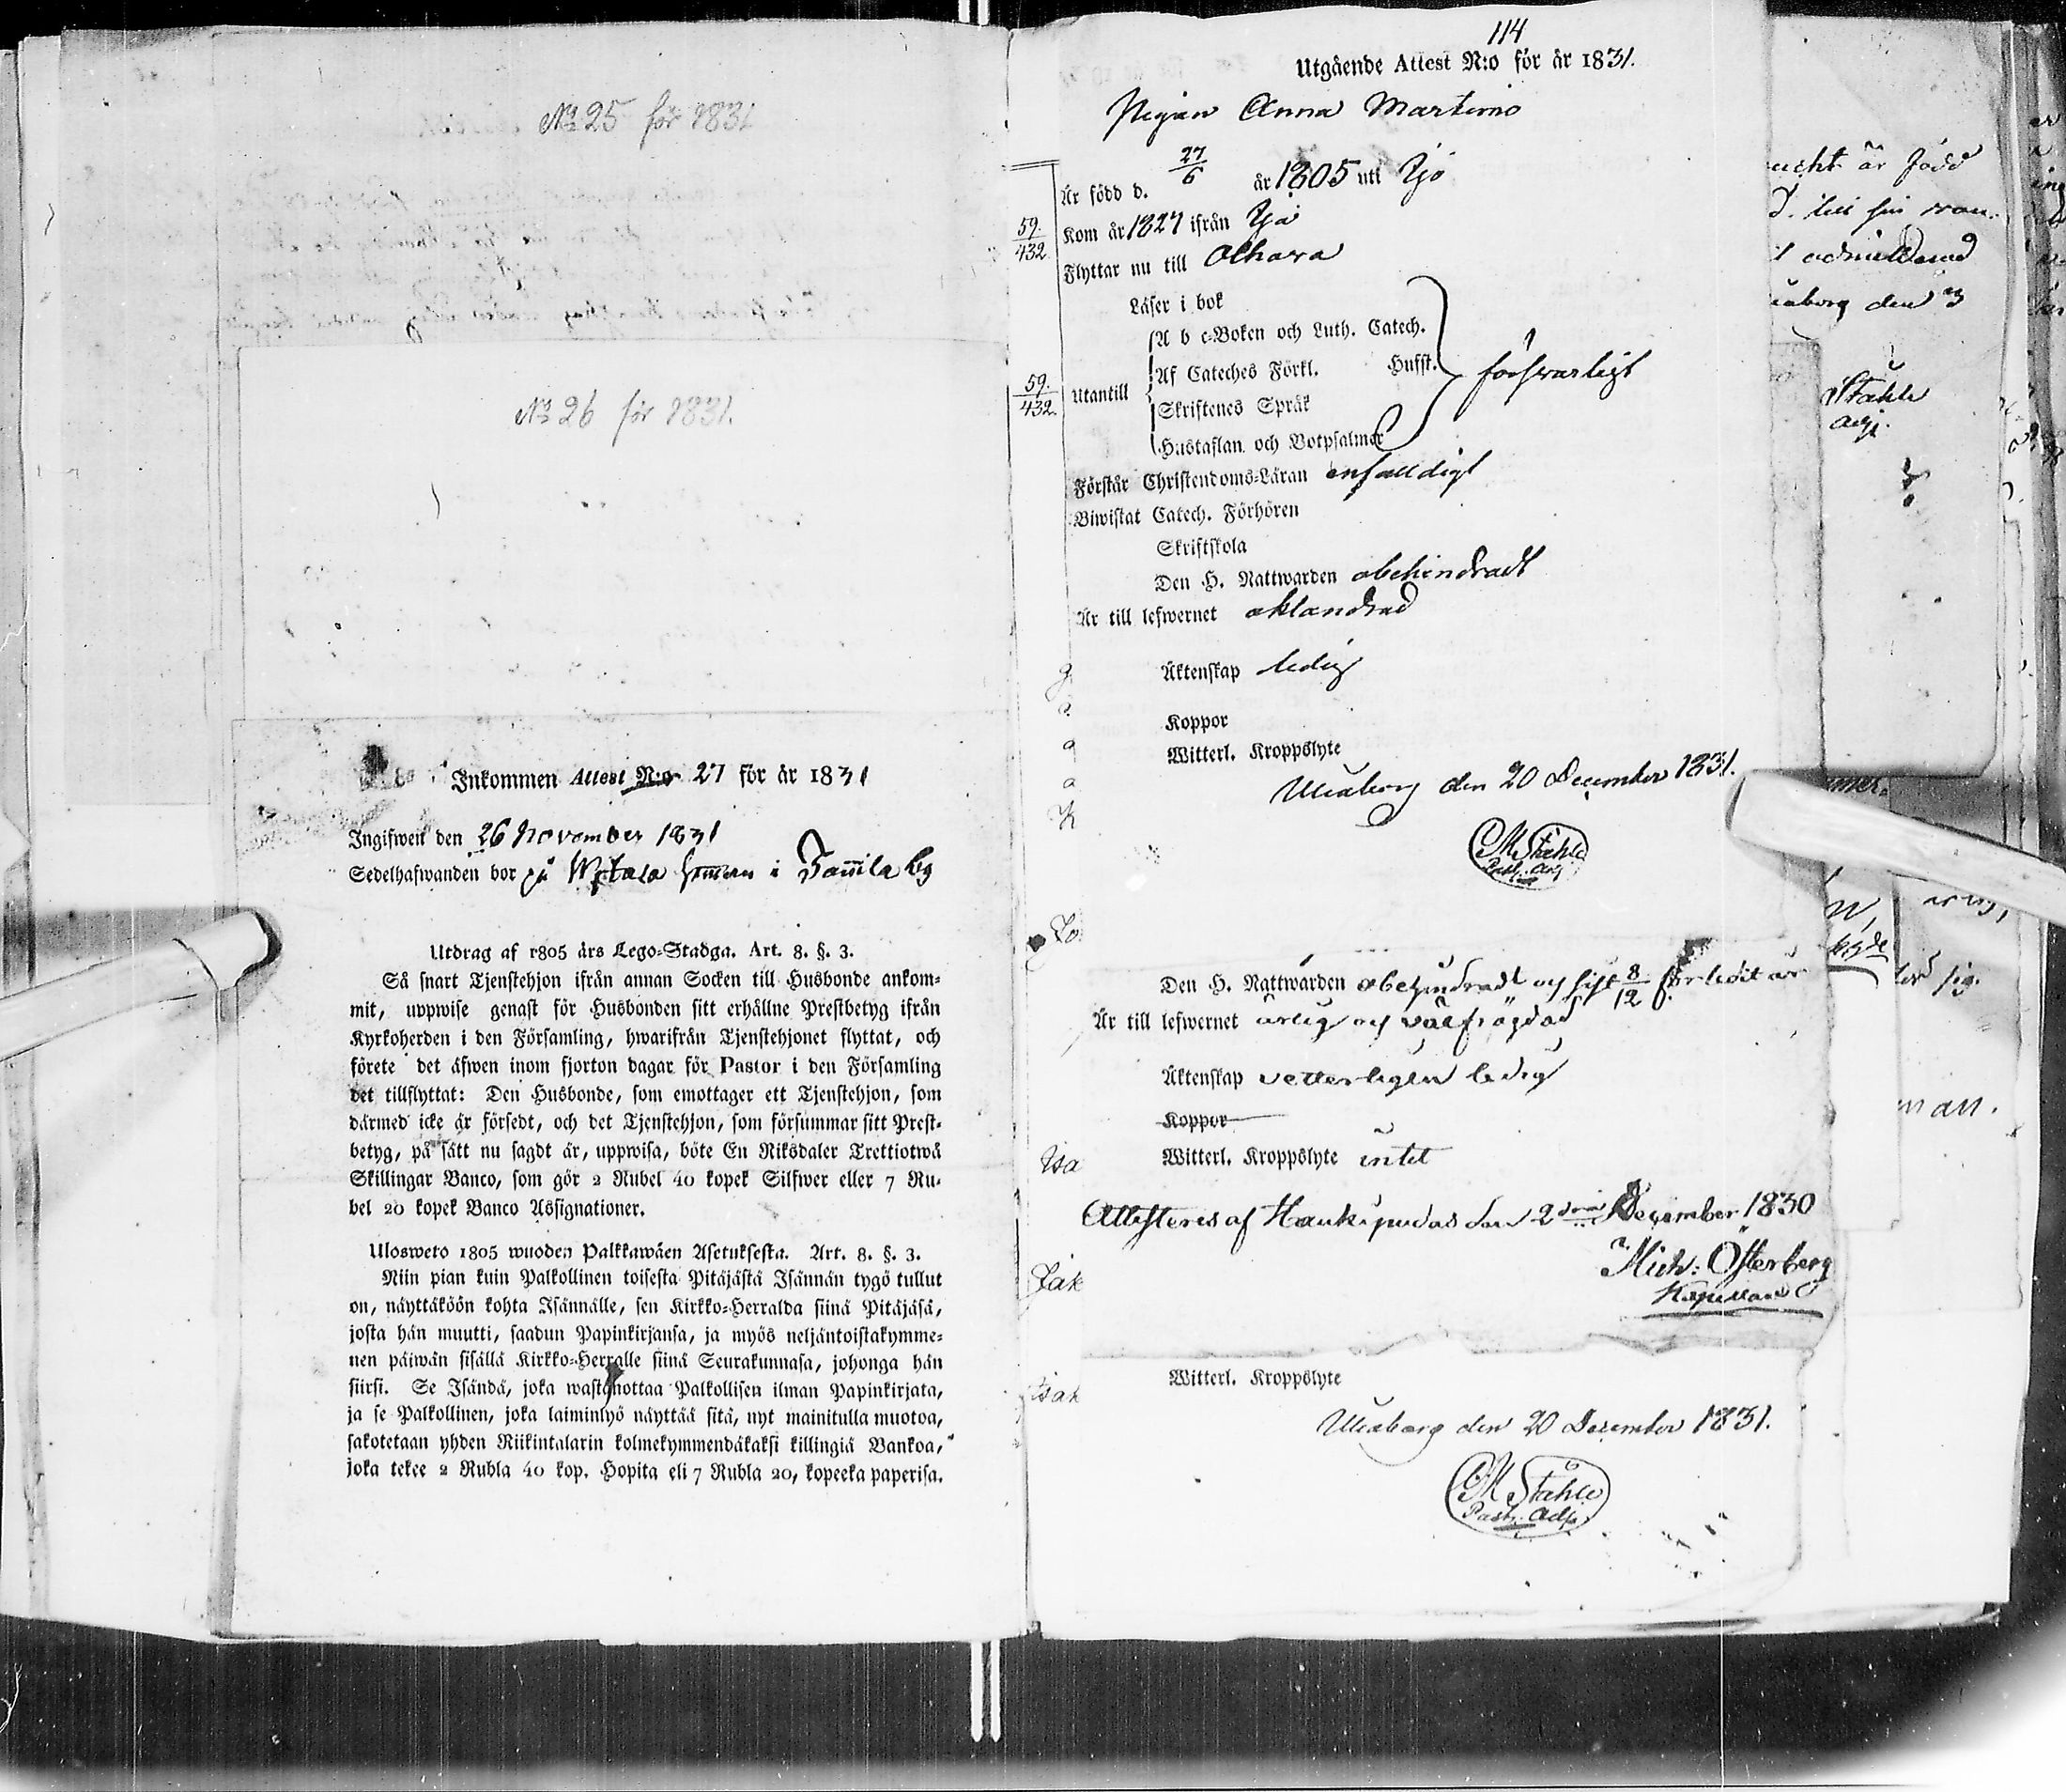 No 25 för 1831
No 26 för 1831.
Inkommen Attest N:o 27 för år 1831
Ingifwen den 26 November 1831
Sedelhafwanden bor på hemman i by
Utdrag af 1805 års Lego-Stadga. Art. 8. §. 3.
Så snart Tjenstehjon ifrån annan Socken till Husbonde ankom-
mit, uppwise genast för Husbonden sitt erhållne Prestbetyg ifrån
Kyrkoherden i den Församling, hwarifrån Tjenstehjonet flyttat, och
förete det äfwen inom fjorton dagar för Pastor i den Församling
det tillflyttat: Den Husbonde, som emottager ett Tjenstehjon, som
därmed icke är försedt, och det Tjenstehjon, som försummar sitt Prest-
betyg, på sätt nu sagdt är, uppwisa, böte En Riksdaler Trettiotwå
Skillingar Banco, som gör 2 Rubel 40 kopek Silfwer eller 7 Ru-
bel 20 kopek Banco Assignationer.
Ulosweto 1805 wuoden Palkkawäen Asetuksesta. Art. 8. §. 3.
Niin pian kuin Palkollinen toisesta Pitäjästä Isännän tygö tullut
on, näyttäköön kohta Isännälle, sen Kirkko-Herralda siinä Pitäjäsä,
josta hän muutti, saadun Papinkirjansa, ja myös neljäntoistakymme-
nen päiwän sisällä Kirkko-Herralle siinä Seurakunnasa, johonga hän
siirsi. Se Isändä, joka wastanottaa Palkollisen ilman Papinkirjata,
ja se Palkollinen, joka laiminlyö näyttää sitä, nyt mainitulla muotoa,
sakotetaan yhden Riikintalarin kolmekymmendäkaksi killingiä Bankoa,
joka tekee 2 Rubla 40 kop. Hopita eli 7 Rubla 20, kopeeka paperisa.
114
Utgående Attest N:o för år 1831.
Pigan Anna Martimo
Är född d. 27/6 år 1805 uti Ijo
59/432 Kom år 1827 ifrån Ijo
Flyttar nu till Olhava
Läser i bok
A b c-Boken och Luth. Catech.
59/432 Utantill Af Cateches Förkl. Husst. försvarligt
Skriftenes Språk
Hustaflan och Botpsalmer
Förstår Christendoms-Läran enfalldigt
Biwistat Catech. Förhören
Skriftskola
Den H. Nattwarden obehindradt
Är till lefwernet oklandrad
Äktenskap ledig
Koppor
Witterl. Kroppslyte
Uleaborg den 20 December 1831.
CM Ståhle
Past. Adj.
Den H. Nattwarden obehindradt och sist 8/12 förledit år
Är till lefwernet ärlig och välfrägdad
Äktenskap vetterligen ledig
Koppor
Witterl. Kroppslyte intet
Attesteres af Haukipudas den 2dra December 1830
Mich: Österberg
Kapellan
Witterl. Kroppslyte
Uleaborg den 20 December 1831.
CM Ståhle
Past. Adj.
är född
uleaborg den 3
Ståhle
Adj.